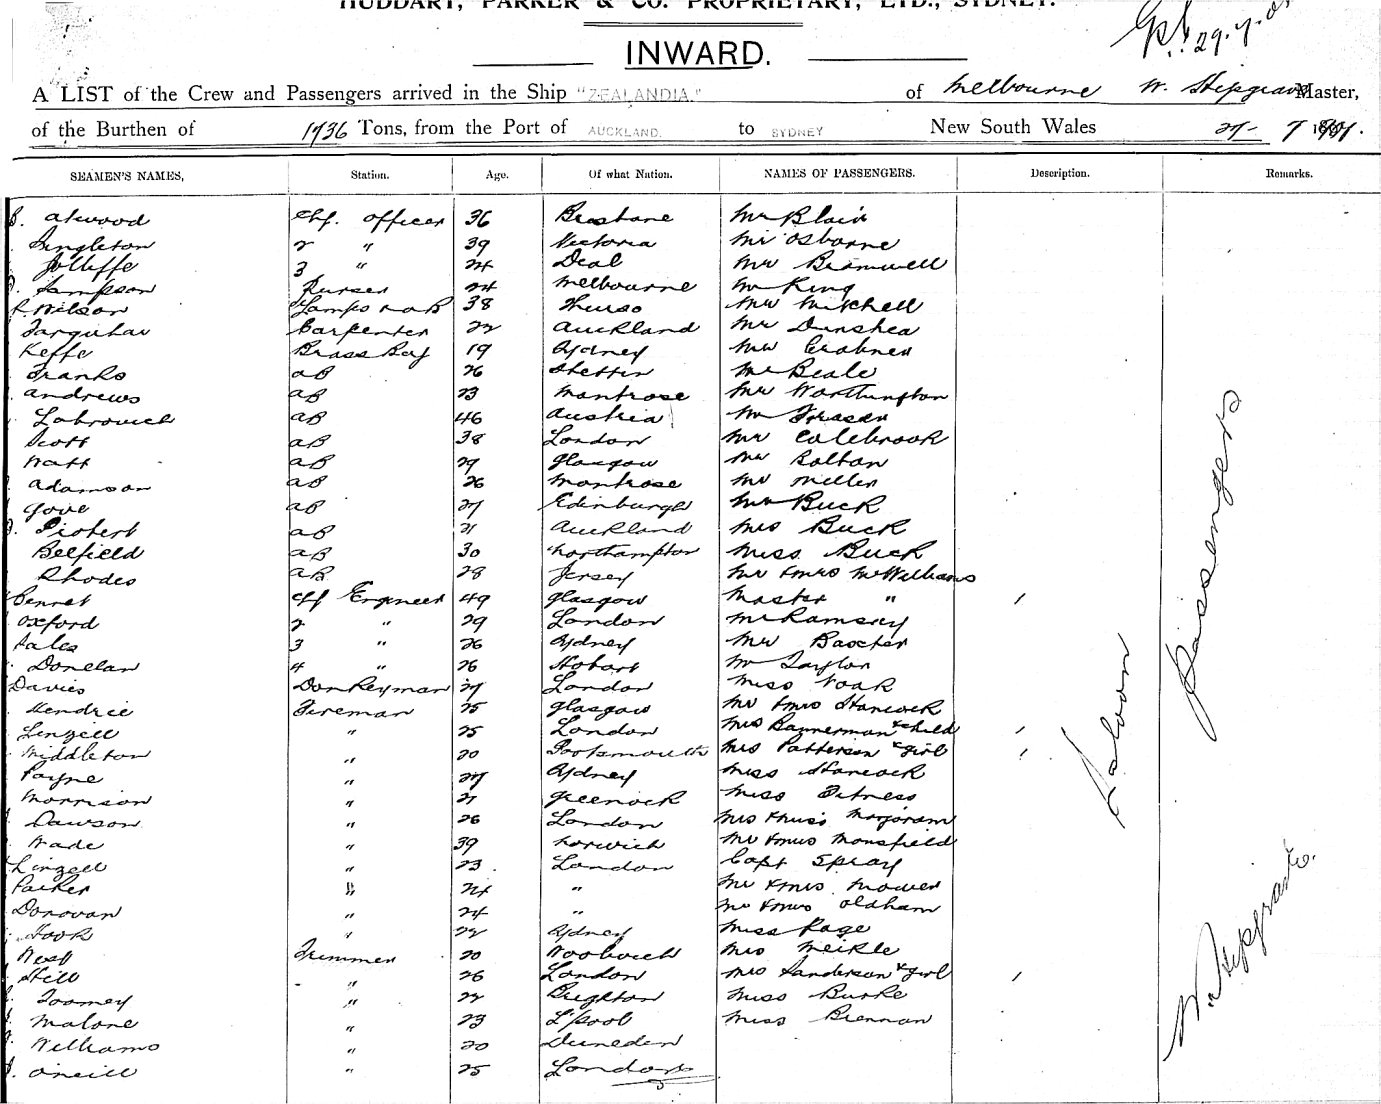 HUDDART, PARKER & CO. PROPRIETARY, LTD., SYDNEY.
INWARD.
A LIST of the Crew and Passengers arrived in the Ship "ZEALANDIA." of Melbourne W. Shipgrave Master,
of the Burthen of 1736 Tons, from the Port of AUCKLAND. to SYDNEY New South Wales 27- 7
SEAMEN'S NAMES, Station. Age. Of what Nation. NAMES OF PASSENGERS. Description. Remarks.
Atwood Chf. Officer 36 Brisbane Mr Blair
Singleton 2 " 39 Victoria Mr Osborne
Jolliffe 3 " 24 Deal Mr Bramwell
Sampson Purser 24 Melbourne Mr King
Wilson Lamps & AB 38 Thurso Mr Mitchell
Farquhar Carpenter 22 Auckland Mr Dunshea
Keffe Brass Boy 19 Sydney Mr
Franks AB 26 Stettin Mr Beale
Andrews AB 23 Montrose Mr Worthington
Labrovich AB 46 Austria Mr Fraser
Scott AB 38 London Mr Colebrook
Watt AB 29 Glasgow Mr Bolton
Adamson AB 26 Montrose Mr Miller
Gove AB 27 Edinburgh Mr Buck
AB 21 Auckland Mrs Buck
Belfield AB 30 Northampton Miss Buck
Rhodes AB 28 Jersey Mr & Mrs McWilliams
Bennet Chf Engineer 49 Glasgow Master " 1
Oxford 2 " 29 London Mr Ramsay
3 " 26 Sydney Mr Baxter
Donelan 4 " 26 Hobart Mr Taylor
Davies Donkeyman 27 London Miss Noak
Hendrie Fireman 25 Glasgow Mr & Mrs Hancock
Linzell " 25 London Mrs Bannerman & child 1
Middleton " 20 Portsmouth Mrs Patterson & girl 1
Payne " 27 Sydney Miss Hancock
Morrison " 21 Greenock Miss Fitness
Dawson " 26 London Mrs & Miss Marjoram
Wade " 39 Norwich Mr & Mrs Mansfield
Linzell " 23 London Capt Spray
Parker " 24 " Mr & Mrs Mower
Donovan " 24 " Mr & Mrs Oldham
Hook " 22 Sydney Miss Page
West Trimmer 20 Woolwich Mrs Meikle
Hill " 26 London Mrs Sanderson & girl 1
Toomey " 22 Brighton Miss Burke
Malone " 23 L'pool Miss Brennan
Williams " 20 Dunedin
Oneill " 25 London
Saloon
Passengers
W. Shipgrave